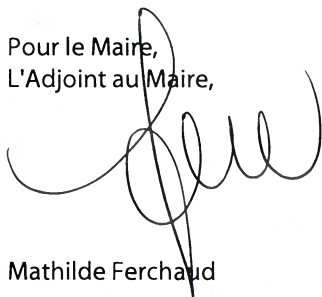 Pour le Maire,
L'Adjoint au Maire,
Mathilde Ferchaud